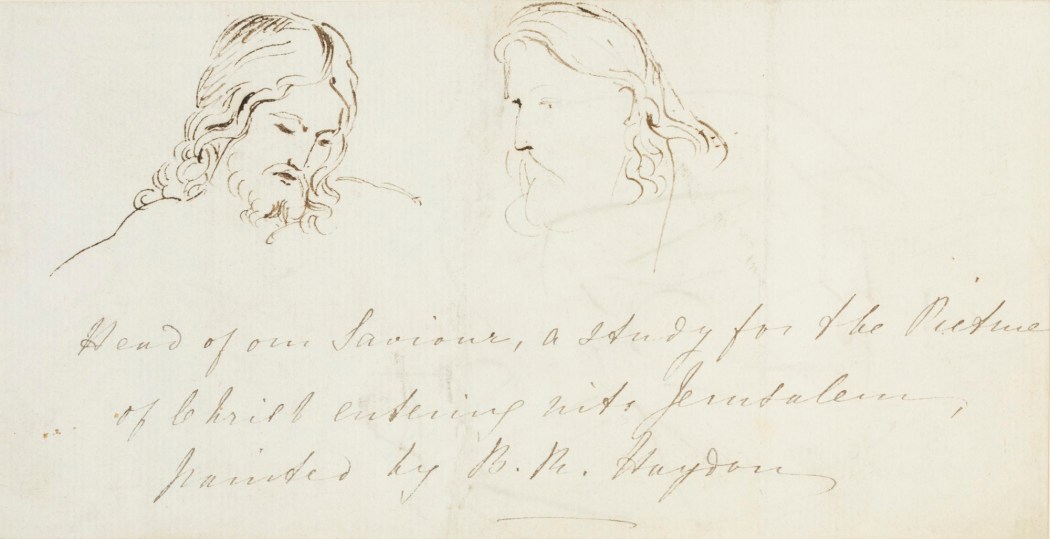 Head of our Saviour, a study for the Picture
of Christ entering into Jerusalem,
painted by B. R. Haydon